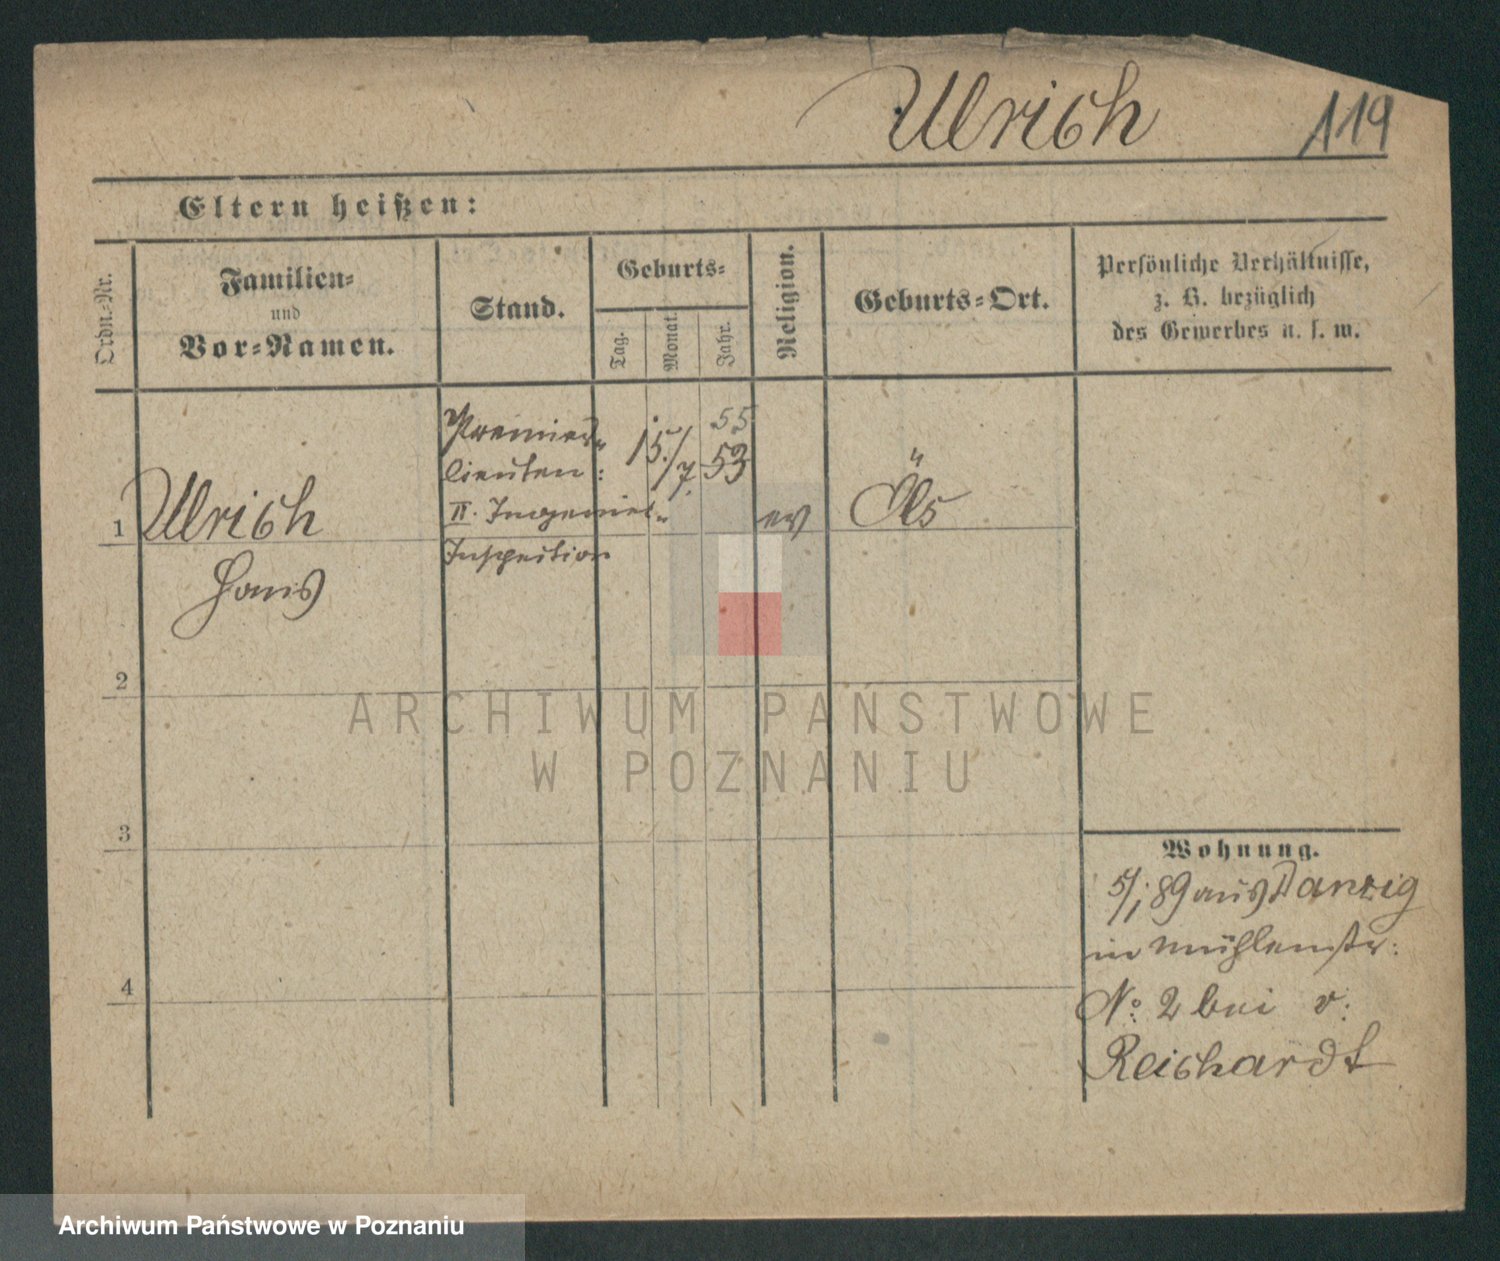 Ulrich 119
Eltern heißen:
Ordn.-Nr.
Familien-
und
Vor-Namen.
Stand.
Geburts-
Tag.
Monat.
Jahr.
Religion.
Geburts-Ort.
Persönliche Verhältnisse,
z. B. bezüglich
des Gewerbes u. s. w.
1
Ulrich
Hans
Premier-
lieuten:
II. Ingenieur-
Inspection
15./7.
55
53
ev
Öls
2
3
4
Wohnung.
5/1 89 aus Danzig
in Mühlenstr:
No: 2 bei v.
Reichardt
ARCHIWUM PAŃSTWOWE
W POZNANIU
Archiwum Państwowe w Poznaniu